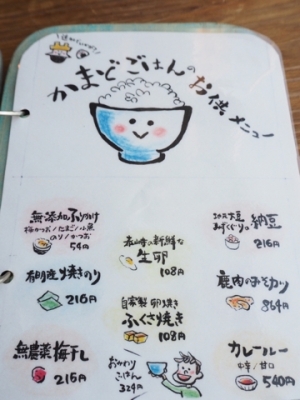 かまどごはんの
お供メニュー
無添加ふりかけ
梅かつお/たまご/小魚
のり/かつお
54円
有明産焼きのり
216円
無農薬梅干し
216円
新鮮な
生卵
108円
自家製 卵焼き
ふくさ焼き
108円
おかわり
ごはん
324円
納豆
216円
鹿肉のみそカツ
864円
カレールー
中辛/甘口
540円